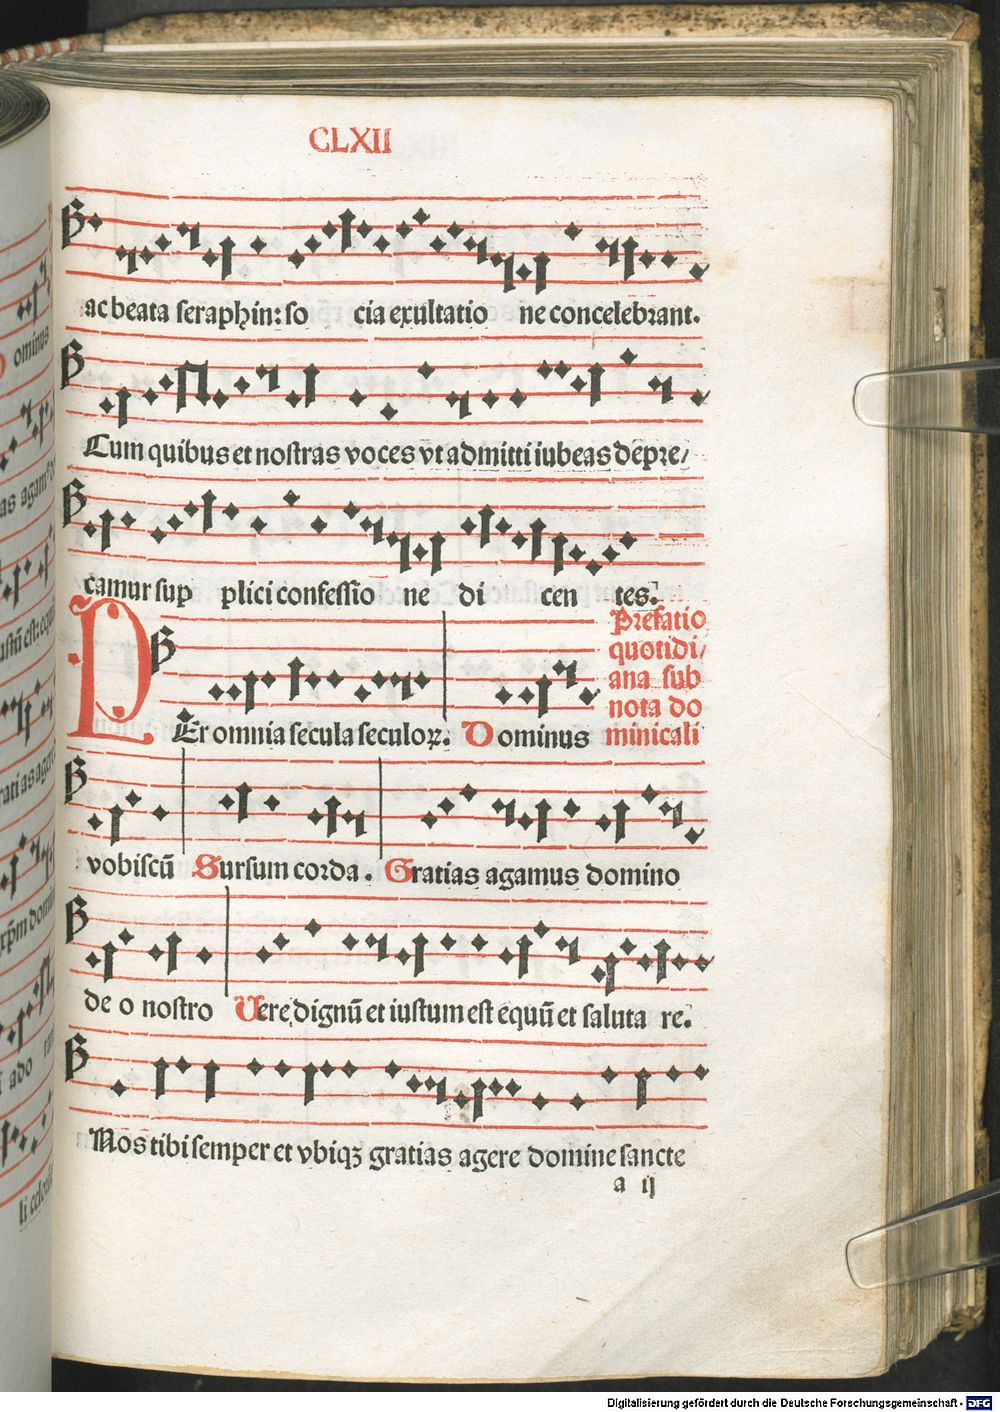 CLXII
ac beata seraphin: so cia exultatio ne concelebrant.
Cum quibus et nostras voces vt admitti iubeas dep̄re/
camur sup plici confessiō ne di cen tes.
Prefatio
quotidi/
ana sub
nota do
minicali
PEr omnia secula seculoꝝ. Dominus
vobiscū Sursum corda. Gratias agamus domino
de o nostro Uere dignū et iustum est equū et saluta re.
Nos tibi semper et vbiqꝫ gratias agere domine sancte
a ij
ominus
as agam
li celorū
Digitalisierung gefördert durch die Deutsche Forschungsgemeinschaft - DFG